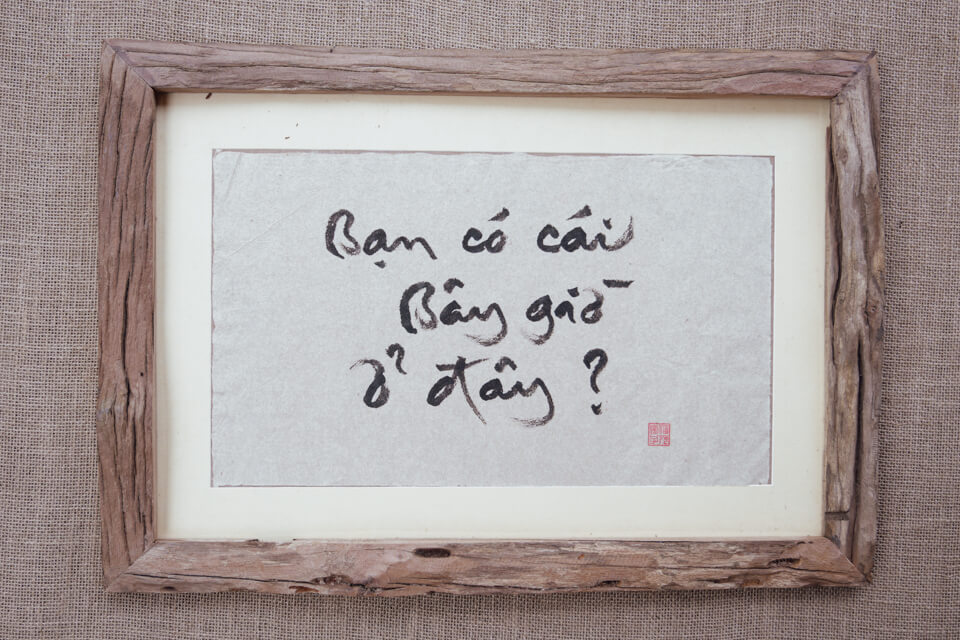 Bạn có cái
Bây giờ
ở đây ?